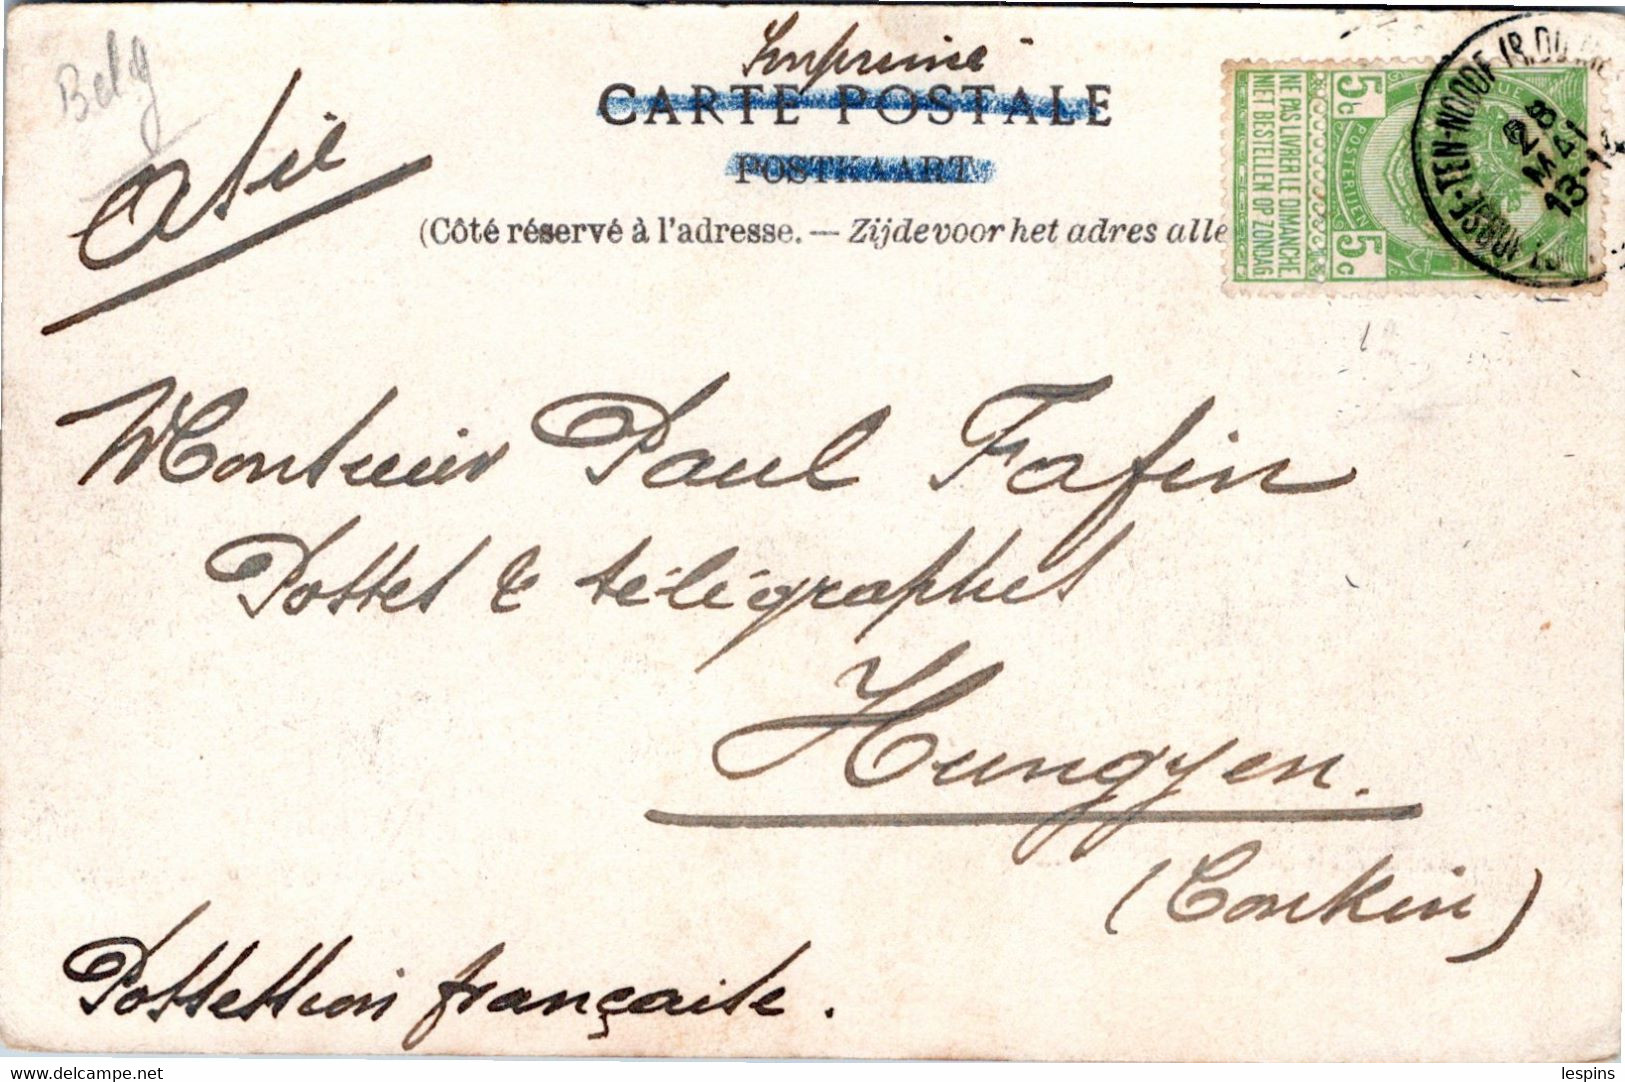 Belg
Imprimé
CARTE POSTALE
POSTKAART
Asie
(Côté réservé à l'adresse. — Zijde voor het adres alle
5c 5c
NE PAS LIVRER LE DIMANCHE
NIET BESTELLEN OP ZONDAG
POSTERIJEN
TEN-NOODE
28
MAI
13-1
Monsieur Paul Fafin
Postes & télégraphes
Hungyen.
(Tonkin)
Possession française.
lespins